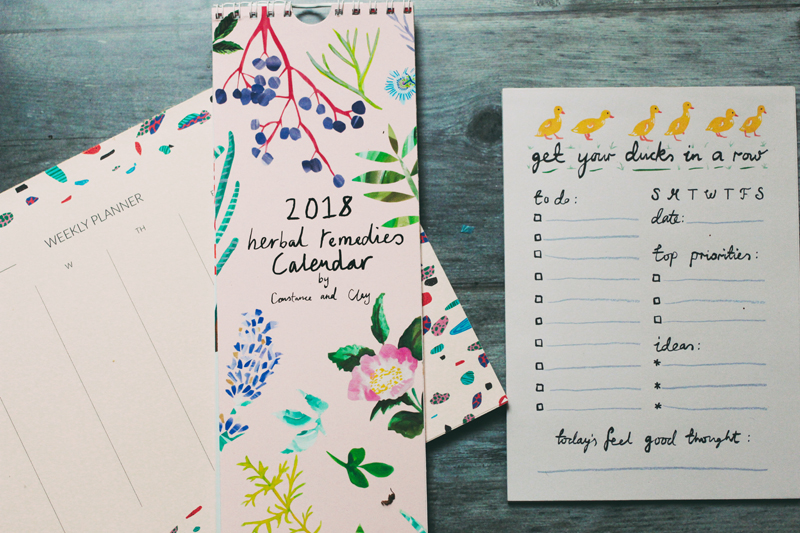 WEEKLY PLANNER
W
TH
2018
herbal remedies
Calendar
by
Constance and Clay
get your ducks in a row
to do:
S M T W T F S
date:
top priorities:
ideas:
*
*
*
today's feel good thought: